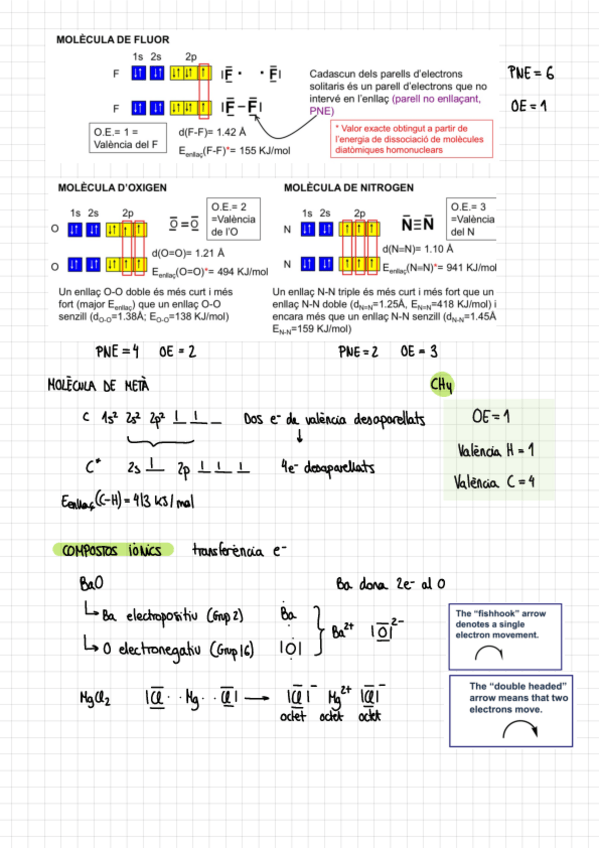 MOLÈCULA DE FLUOR
1s 2s 2p
F ↓↑ ↓↑ ↓↑ ↓↑ ↑ |F · · F|
F ↓↑ ↓↑ ↓↑ ↓↑ ↑ |F – F|
Cadascun dels parells d'electrons
solitaris és un parell d'electrons que no
intervé en l'enllaç (parell no enllaçant,
PNE)
PNE = 6
OE = 1
O.E.= 1 =
València del F
d(F-F)= 1.42 Å
Eenllaç(F-F)*= 155 KJ/mol
* Valor exacte obtingut a partir de
l'energia de dissociació de molècules
diatòmiques homonuclears
MOLÈCULA D'OXIGEN
1s 2s 2p
O ↓↑ ↓↑ ↓↑ ↑ ↑
O ↓↑ ↓↑ ↓↑ ↑ ↑
O = O
O.E.= 2
=València
de l'O
d(O=O)= 1.21 Å
Eenllaç(O=O)*= 494 KJ/mol
Un enllaç O-O doble és més curt i més
fort (major Eenllaç) que un enllaç O-O
senzill (dO-O=1.38Å; EO-O=138 KJ/mol)
MOLÈCULA DE NITROGEN
1s 2s 2p
N ↓↑ ↓↑ ↑ ↑ ↑
N ↓↑ ↓↑ ↑ ↑ ↑
N≡N
O.E.= 3
=València
del N
d(N≡N)= 1.10 Å
Eenllaç(N≡N)*= 941 KJ/mol
Un enllaç N-N triple és més curt i més fort que un
enllaç N-N doble (dN=N=1.25Å, EN=N=418 KJ/mol) i
encara més que un enllaç N-N senzill (dN-N=1.45Å
EN-N=159 KJ/mol)
PNE = 4 OE = 2
PNE = 2 OE = 3
MOLÈCULA DE METÀ
CH4
C 1s² 2s² 2p² 1 1 _ Dos e⁻ de valència desaparellats
↓
C* 2s 1 2p 1 1 1 4e⁻ desaparellats
Eenllaç(C-H) = 413 KJ/mol
OE = 1
València H = 1
València C = 4
COMPOSTOS IÒNICS transferència e⁻
BaO Ba dona 2e⁻ al O
↳ Ba electropositiu (Grup 2) Ba
↳ O electronegatiu (Grup 16) |O|
Ba²⁺ |O|²⁻
The "fishhook" arrow
denotes a single
electron movement.
MgCl2 |Cl · · Mg · · Cl| → |Cl|⁻ Mg²⁺ |Cl|⁻
octet octet octet
The "double headed"
arrow means that two
electrons move.